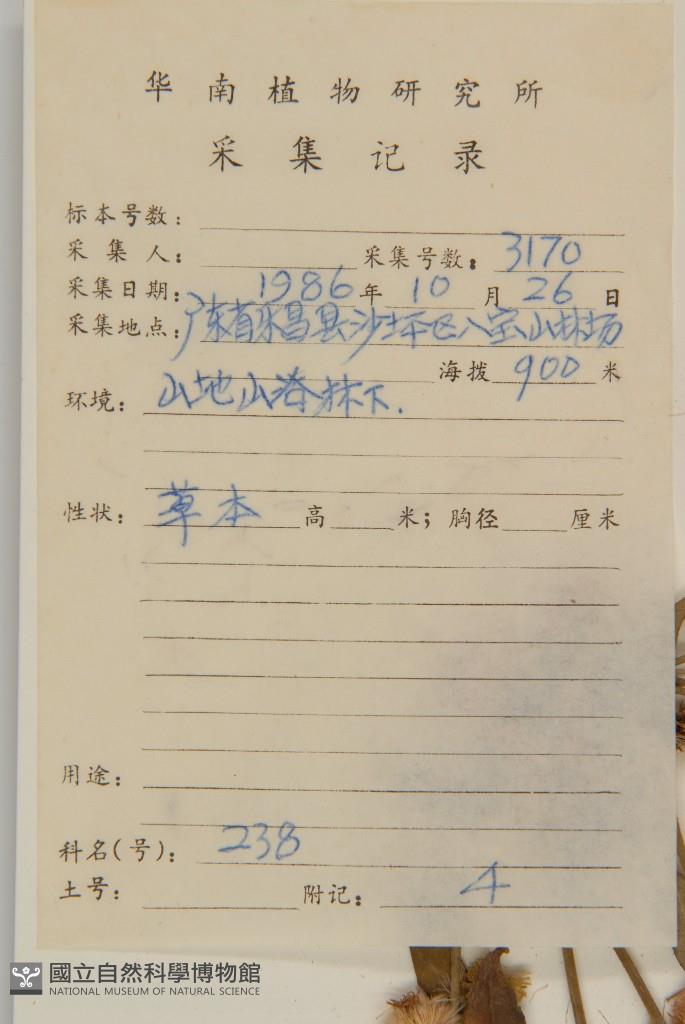 华南植物研究所
采集记录
标本号数:
采集人: 采集号数: 3170
采集日期: 1986年 10 月 26 日
采集地点: 广东省乐昌县沙坪区八宝山林场
海拨 900 米
环境: 山地山脊林下.
性状: 草本 高 米; 胸径 厘米
用途:
科名(号): 238
土号: 附记: 4
國立自然科學博物館
NATIONAL MUSEUM OF NATURAL SCIENCE